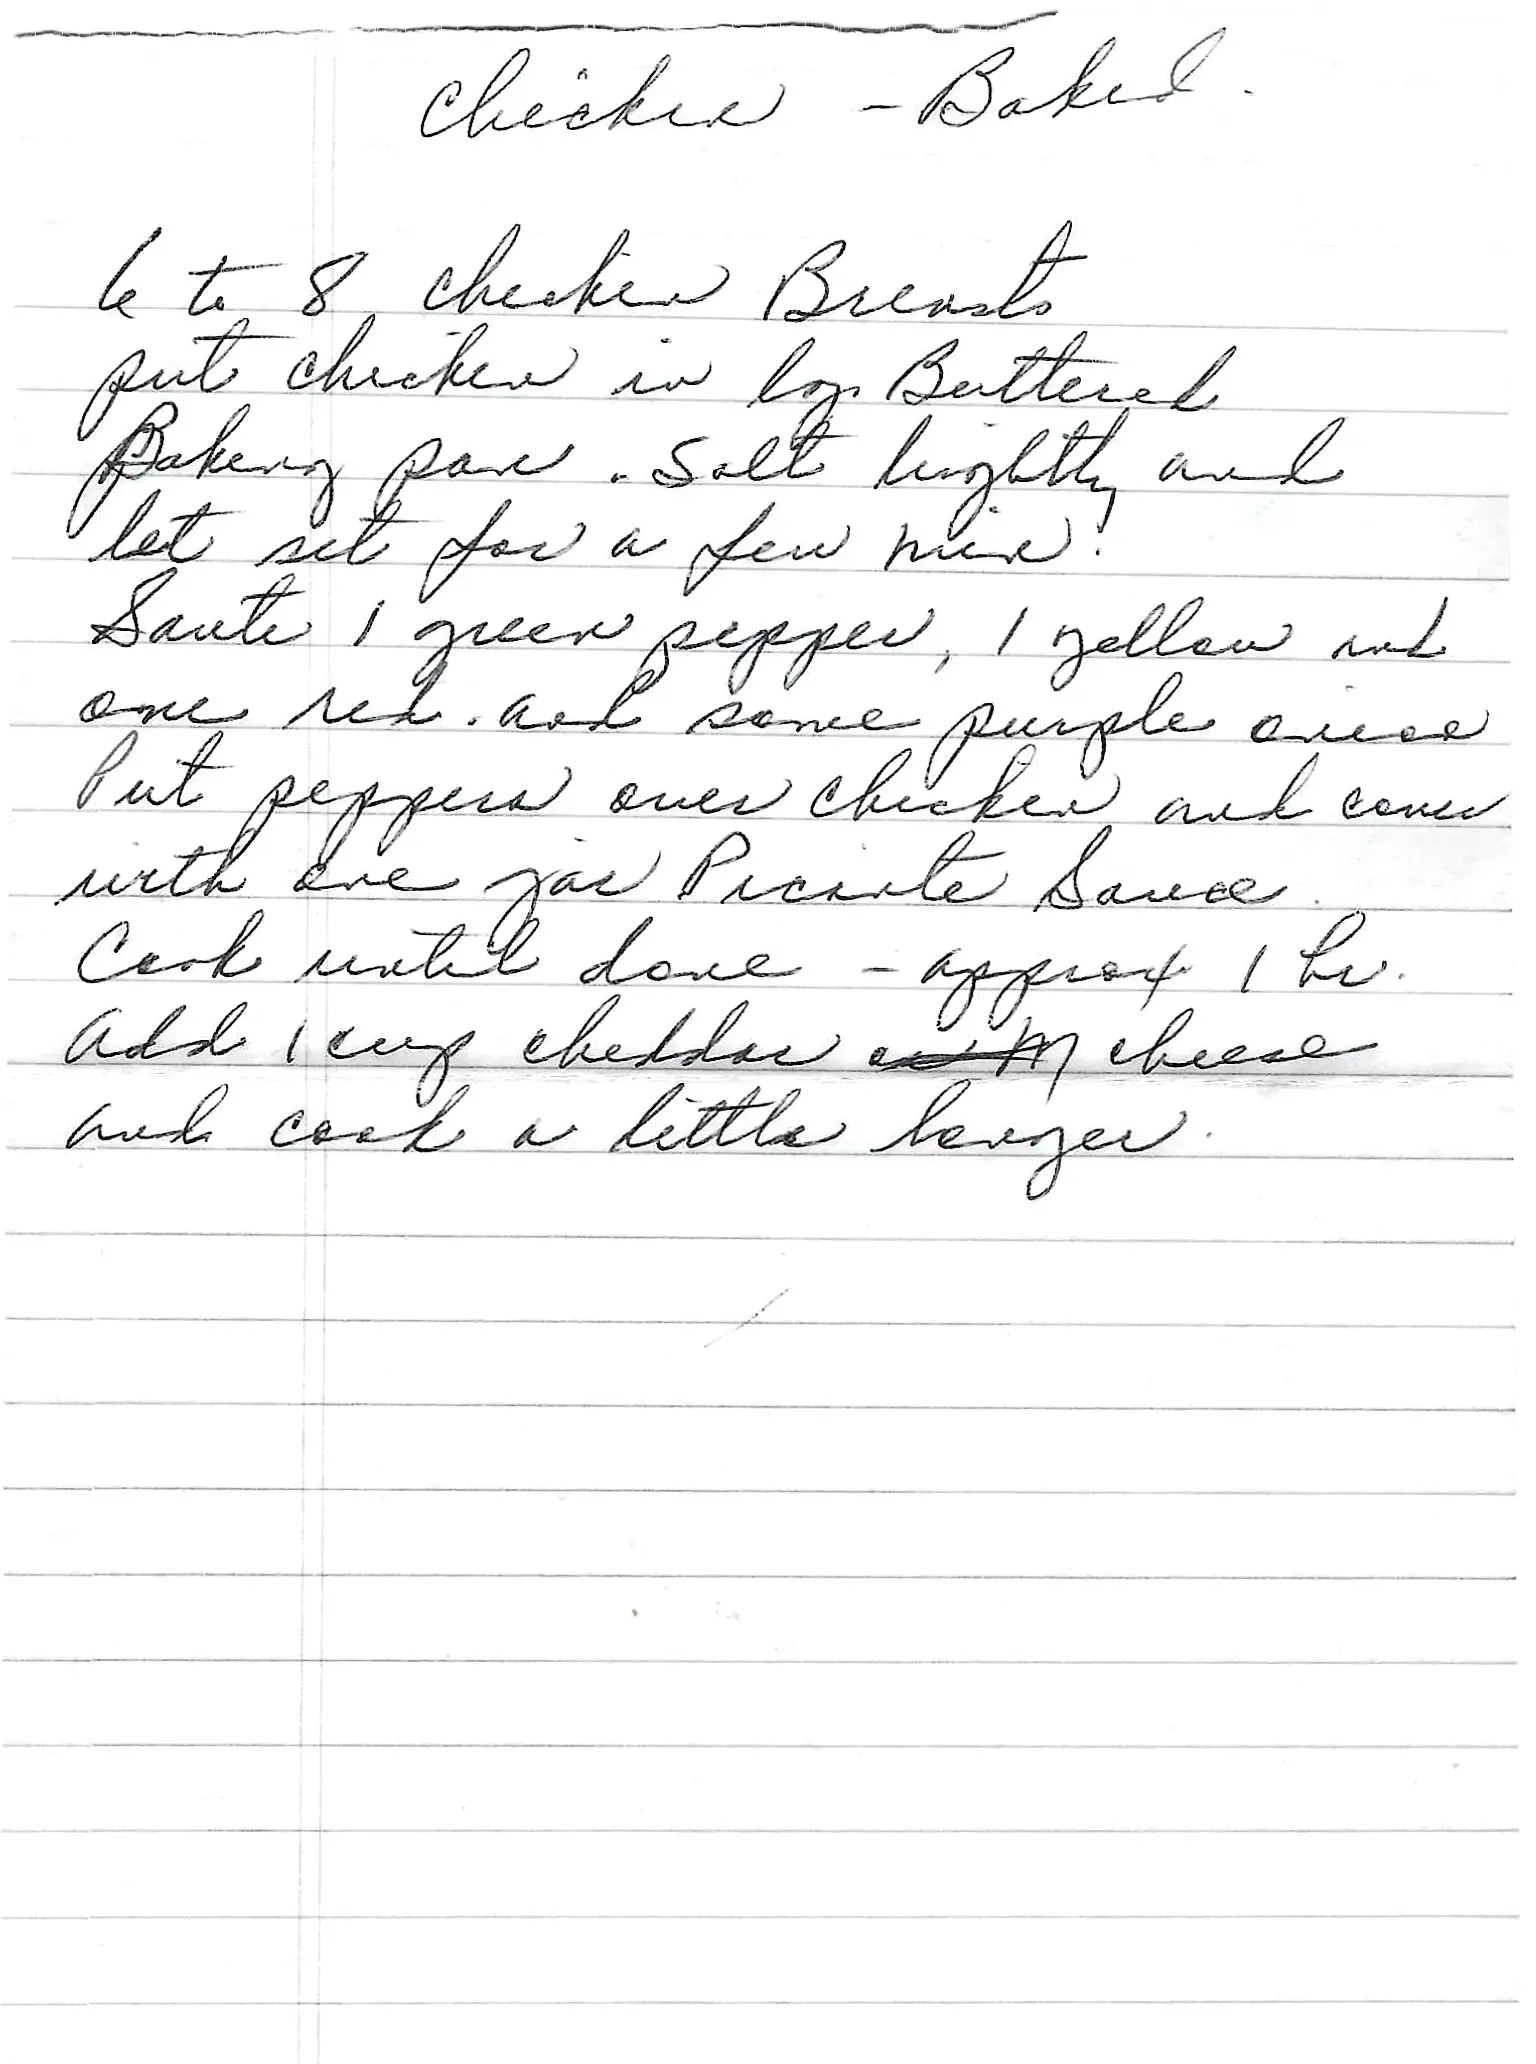 Chicken - Baked.
6 to 8 chicken Breasts
put chicken in lg. Buttered
Baking pan. Salt lightly and
let set for a few min.
Saute 1 green pepper, 1 yellow and
one red. and some purple onion
Put peppers over chicken and cover
with one jar Picante Sauce.
Cook until done - approx 1 hr.
Add 1 cup cheddar cheese
and cook a little longer.